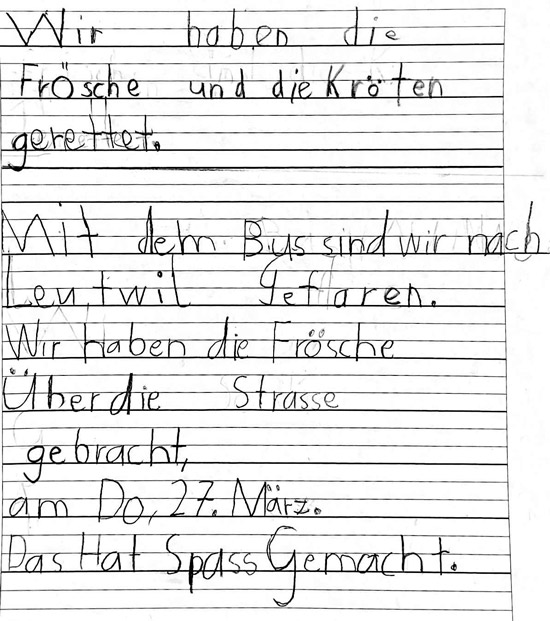 Wir haben die
Frösche und die Kröten
gerettet.
Mit dem Bus sind wir nach
Leutwil Gefaren.
Wir haben die Frösche
Über die Strasse
gebracht,
am Do, 27. März.
Das Hat Spass Gemacht.